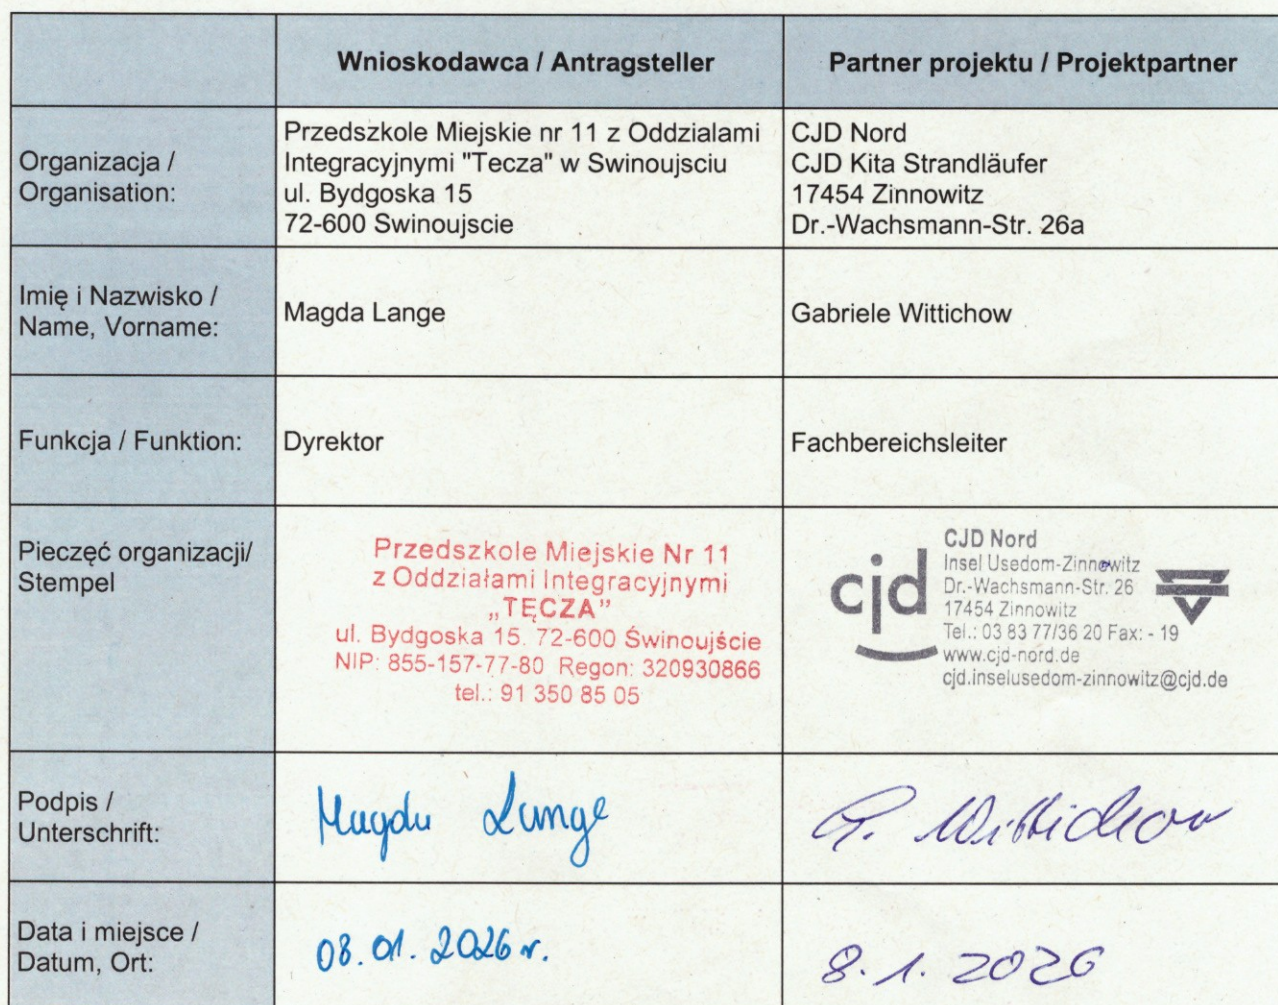 Wnioskodawca / Antragsteller
Partner projektu / Projektpartner
Organizacja /
Organisation:
Przedszkole Miejskie nr 11 z Oddzialami
Integracyjnymi "Tecza" w Swinoujsciu
ul. Bydgoska 15
72-600 Swinoujscie
CJD Nord
CJD Kita Strandläufer
17454 Zinnowitz
Dr.-Wachsmann-Str. 26a
Imię i Nazwisko /
Name, Vorname:
Magda Lange
Gabriele Wittichow
Funkcja / Funktion:
Dyrektor
Fachbereichsleiter
Pieczęć organizacji/
Stempel
Przedszkole Miejskie Nr 11
z Oddziałami Integracyjnymi
„TĘCZA”
ul. Bydgoska 15. 72-600 Świnoujście
NIP: 855-157-77-80 Regon: 320930866
tel.: 91 350 85 05
cjd
CJD Nord
Insel Usedom-Zinnowitz
Dr.-Wachsmann-Str. 26
17454 Zinnowitz
Tel.: 03 83 77/36 20 Fax: - 19
www.cjd-nord.de
cjd.inselusedom-zinnowitz@cjd.de
Podpis /
Unterschrift:
Magda Lange
G. Wittichow
Data i miejsce /
Datum, Ort:
08.01.2026 r.
8.1.2026